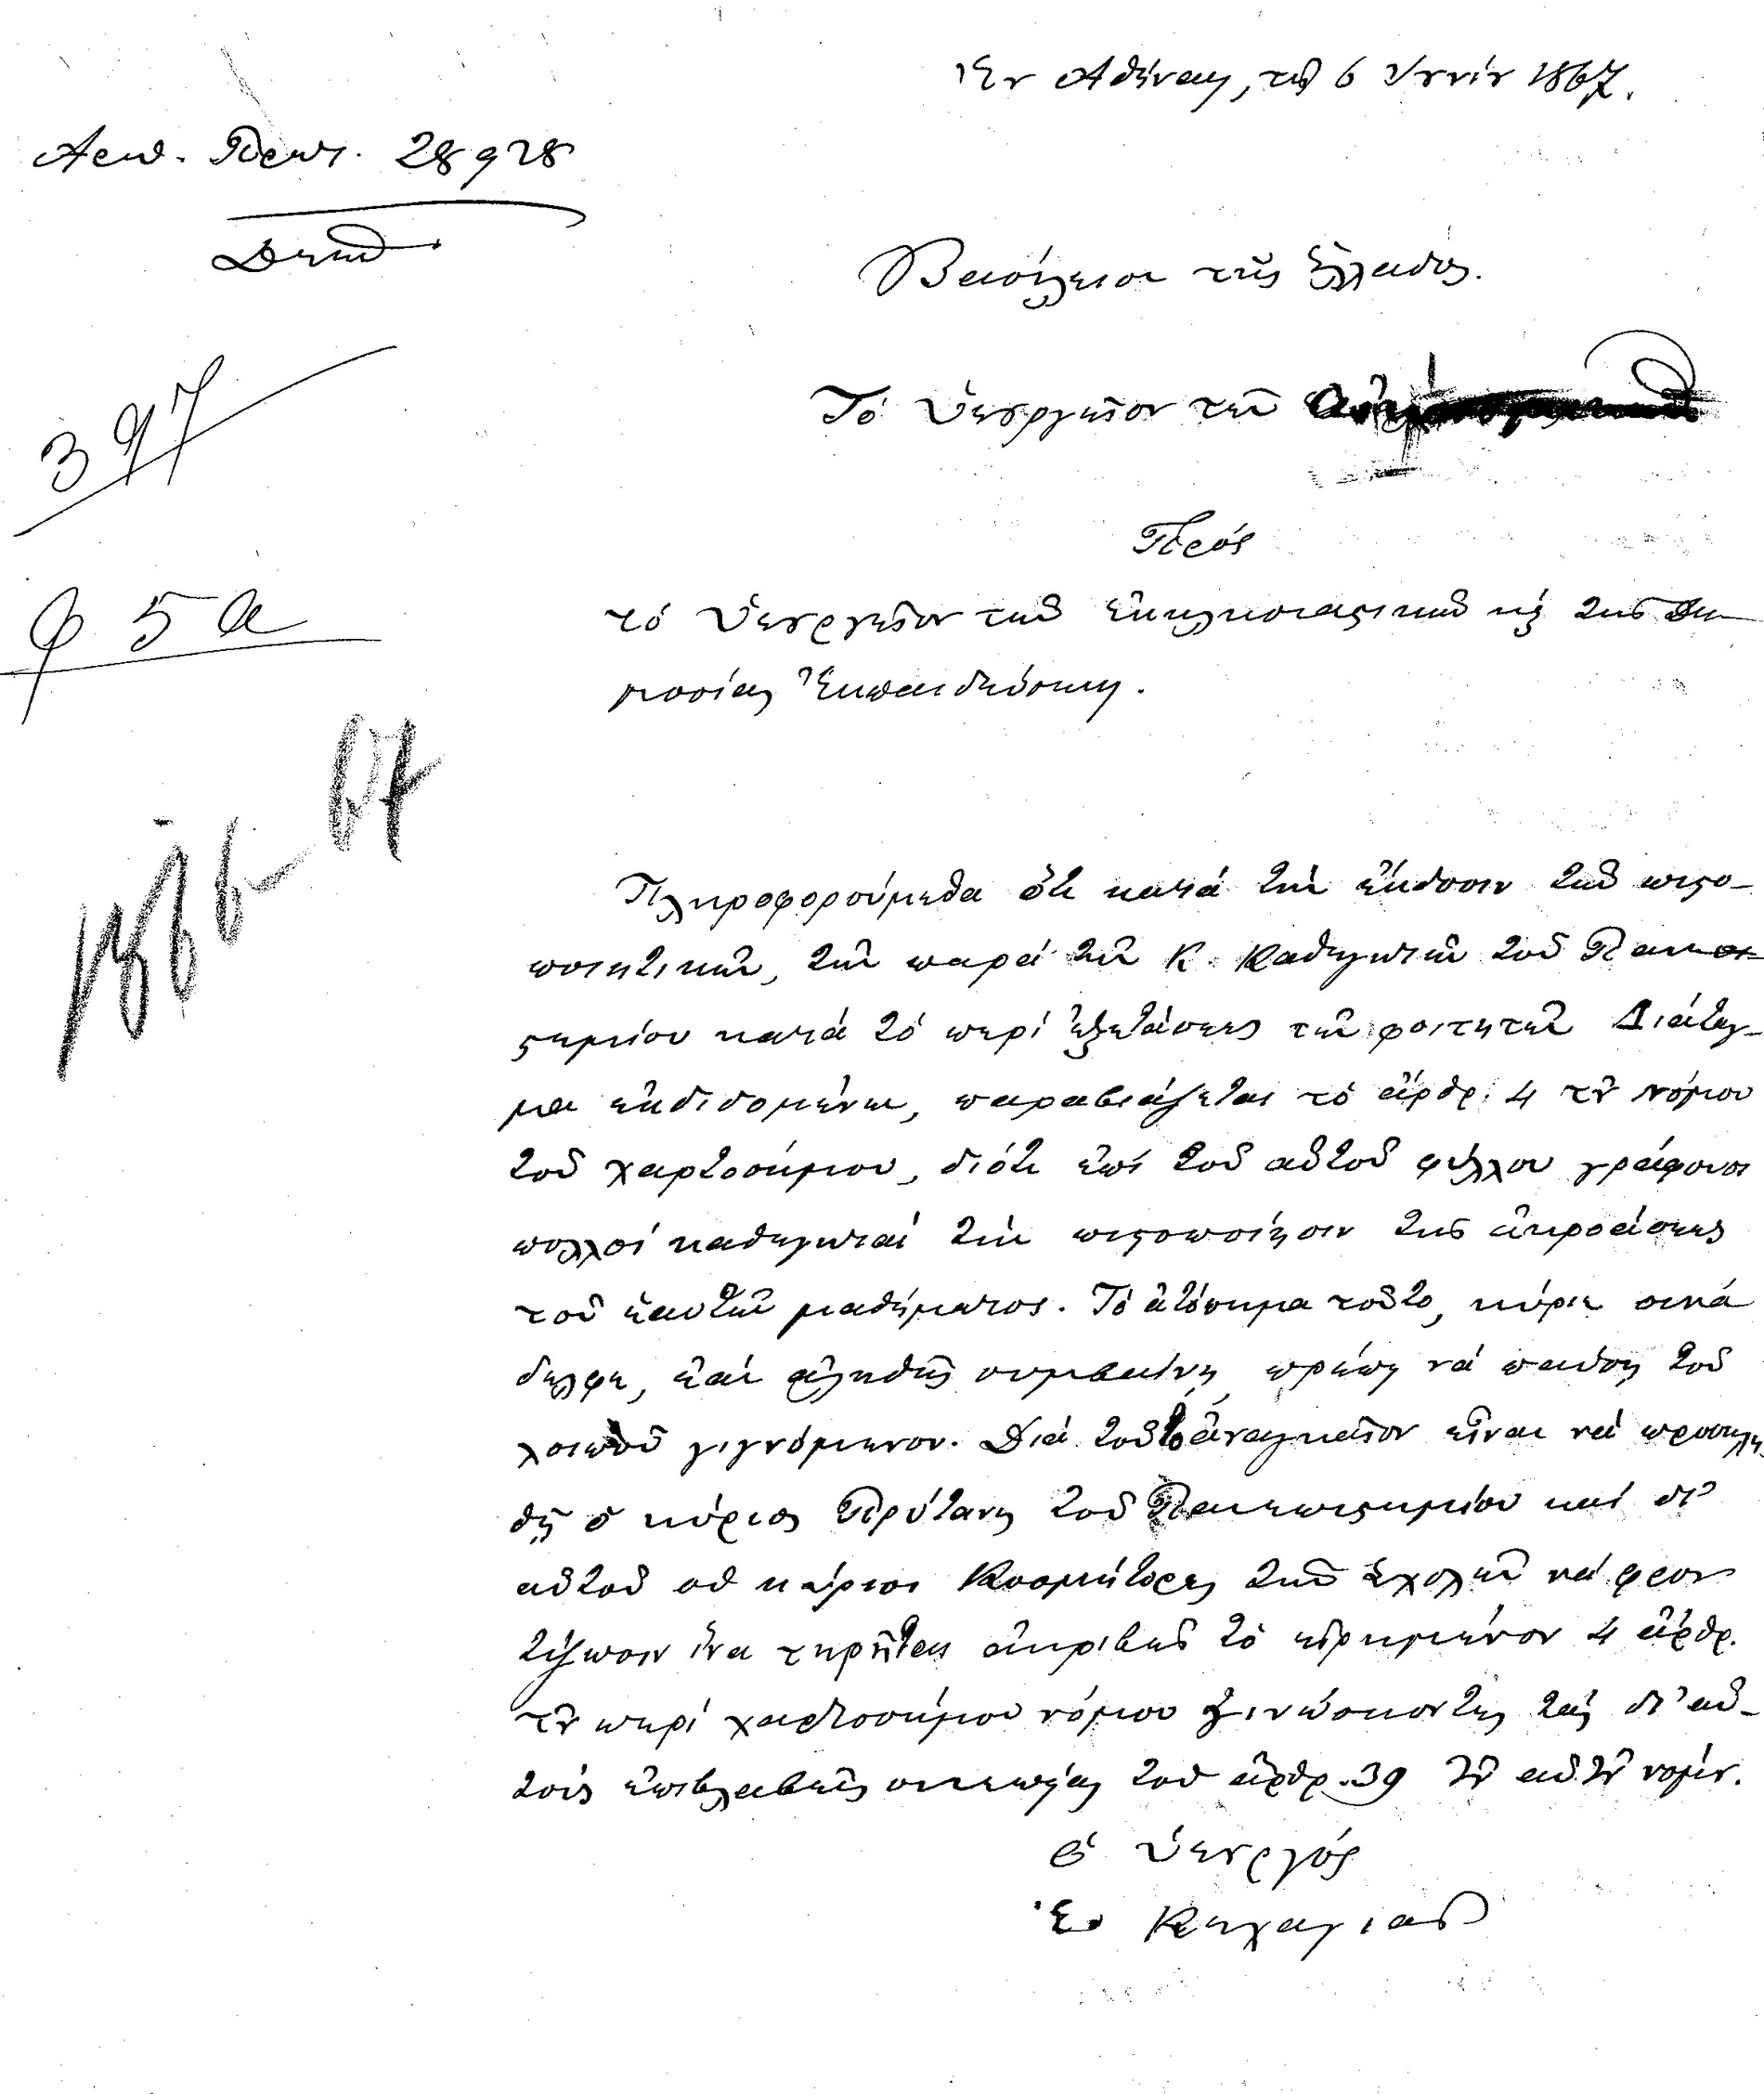 Ἐν Ἀθήναις, τῇ 6 Ἰουνίου 1867.
Ἀριθ. Πρωτ. 28928
Βασίλειον τῆς Ἑλλάδος.
397
Τό Ὑπουργεῖον τῶν
Πρός
φ 5 α
τό Ὑπουργεῖον τῶν Ἐκκλησιαστικῶν κ̀ τῆς Δη-
μοσίας Ἐκπαιδεύσεως.
1866-67
Πληροφορούμεθα ὅτι κατά τήν ἔκδοσιν τῶν πιστο-
ποιητικῶν, τῶν παρά τῶν Κ. Καθηγητῶν τοῦ Πανεπι-
στημίου κατά τό περί ἐξετάσεως τῶν φοιτητῶν Διάταγ-
μα ἐκδιδομένων, παραβιάζεται τό ἄρθρ. 4 τοῦ νόμου
τοῦ χαρτοσήμου, διότι ἐπί τοῦ αὐτοῦ φύλλου γράφουσι
πολλοί καθηγηταί τήν πιστοποίησιν τῆς ἀκροάσεως
τοῦ ἑαυτῶν μαθήματος. Τό ἀτόπημα τοῦτο, κύριε συνά
δελφε, ἐάν ἀληθῶς συμβαίνῃ, πρέπει νά παύσῃ τοῦ
λοιποῦ γιγνόμενον. Διά τοῦτο ἀναγκαῖον εἶναι νά προσκλη
θῇ ὁ κύριος Πρύτανις τοῦ Πανεπιστημίου καί δι'
αὐτοῦ οἱ κύριοι Κοσμήτορες τῶν Σχολῶν νά φρον
τίζωσιν ἵνα τηρῆται ἀκριβῶς τό εἰρημένον 4 ἄρθρ.
τοῦ περί χαρτοσήμου νόμου γινώσκοντες τάς δι' αὐ-
τούς ἐπιβλαβεῖς συνεπείας τοῦ ἄρθρ. 39 τοῦ αὐτοῦ νόμου.
Ὁ Ὑπουργός
Κεχαγιάς